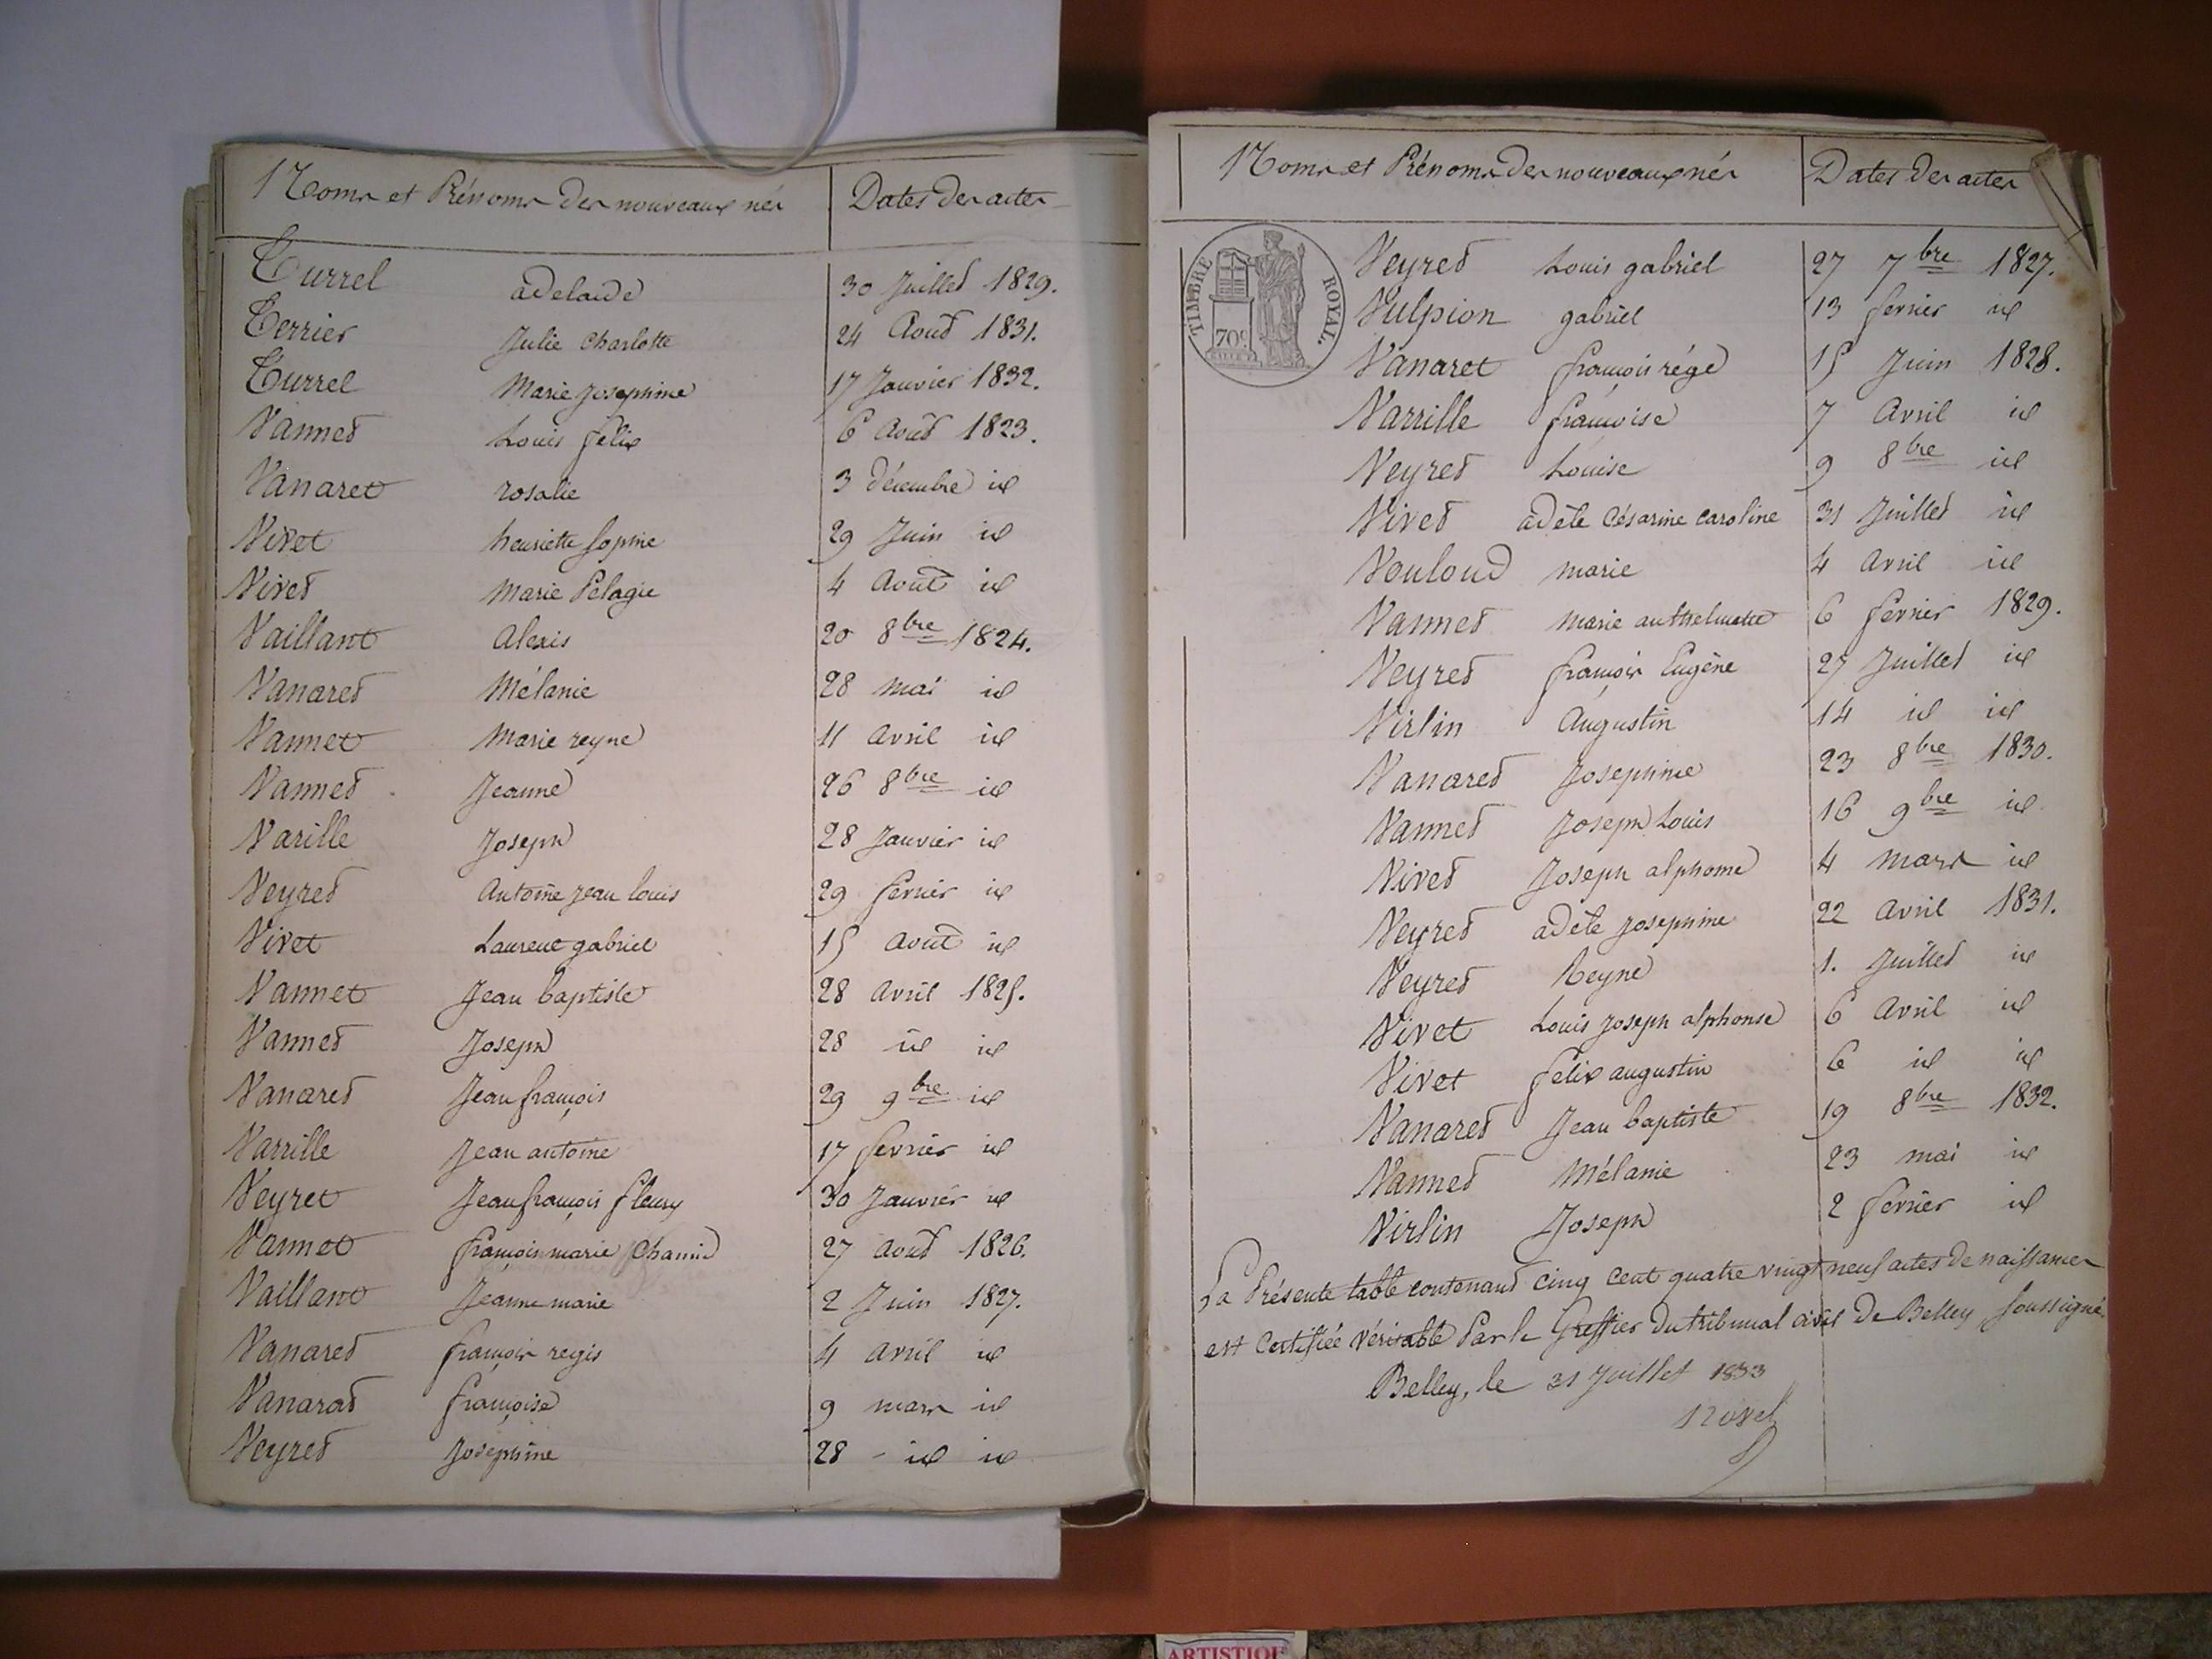 Noms et Prénoms des nouveaux nés Dates des actes
Turrel adelaide 30 Juillet 1829.
Terrier Julie Charlotte 24 Aout 1831.
Turrel Marie Josephine 17 Janvier 1832.
Vannet Louis felix 6 Aout 1823.
Vanaret rosalie 3 décembre id
Vivet henriette Sophie 29 Juin id
Vivet Marie Pélagie 4 Aout id
Vaillant Alexis 20 8bre 1824.
Vanaret Mélanie 28 mai id
Vannet Marie reyne 11 Avril id
Vannet Jeanne 26 8bre id
Varille Joseph 28 Janvier id
Veyret Antoine Jean Louis 29 fevrier id
Vivet Laurent gabriel 15 Aout id
Vannet Jean baptiste 28 Avril 1825.
Vannet Joseph 28 id id
Vanaret Jean françois 29 9bre id
Varrille Jean antoine 17 fevrier id
Veyret Jean françois fleury 30 Janvier id
Vannet françois marie 27 Aout 1826.
Vaillant Jeanne marie 2 Juin 1827.
Vanaret françois regis 4 Avril id
Vanarat françoise 9 mars id
Veyret Josephine 28 - id id
Noms et Prénoms des nouveaux nés Dates des actes
TIMBRE ROYAL.
70c
Veyret Louis gabriel 27 7bre 1827.
Vulpion gabriel 13 fevrier id
Vanaret françois rége 15 Juin 1828.
Varrille françoise 7 Avril id
Veyret Louise 9 8bre id
Vivet adèle Césarine Caroline 31 Juillet id
Vouloud marie 4 Avril id
Vannet marie anthelmette 6 fevrier 1829.
Veyret françois Eugène 27 Juillet id
Virlin Augustin 14 id id
Vanaret Josephine 23 8bre 1830.
Vannet Joseph Louis 16 9bre id
Vivet Joseph alphonse 4 mars id
Veyret adèle Josephine 22 Avril 1831.
Veyret Reyne 1. Juillet id
Vivet Louis Joseph alphonse 6 Avril id
Vivet félix augustin 6 id id
Vanaret Jean baptiste 19 8bre 1832.
Vannet Mélanie 23 mai id
Virlin Joseph 2 fevrier id
La Présente table contenant cinq cent quatre vingt neuf actes de naissances
est certifiée véritable par le Greffier du tribunal civil de Belley soussigné
Belley, le 31 Juillet 1833
ARTISTIQUE